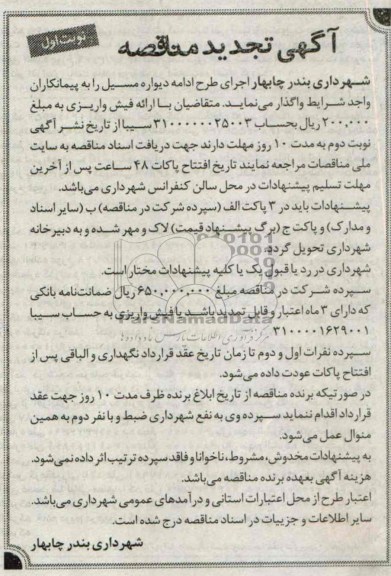 نوبت اول
آگهی تجدید مناقصه
شهرداری بندر چابهار اجرای طرح ادامه دیواره مسیل را به پیمانکاران
واجد شرایط واگذار می‌نمایـد. متقاضیان بـا ارائه فیش واریزی به مبلغ
۲۰۰,۰۰۰ ریال بحساب ۳۱۰۰۰۰۰۰۲۵۰۰۳ سیبا از تاریخ نشـر آگهی
نوبت دوم به مدت ۱۰ روز مهلت دارند جهت دریافت اسناد مناقصه به سایت
ملی مناقصات مراجعه نمایند تاریخ افتتاح پاکات ۴۸ ساعت پس از آخرین
مهلت تسلیم پیشنهادات در محل سالن کنفرانس شهرداری می‌باشد.
پیشنهادات باید در ۳ پاکت الف (سپرده شرکت در مناقصه) ب (سایر اسناد
و مدارک) و پاکت ج (برگ پیشنهاد قیمت) لاک و مهر شده و به دبیرخانه
شهرداری تحویل گردد.
شهرداری در رد یا قبول یک یا کلیه پیشنهادات مختار است.
سپرده شـرکت در مناقصه مبلغ ۶۵۰,۰۰۰,۰۰۰ ریال ضمانت‌نامه بانکی
که دارای ۳ ماه اعتبار و قابل تمدید باشـد یا فیش واریزی به حسـاب سیبا
۳۱۰۰۰۰۱۶۲۹۰۰۱
سپرده نفرات اول و دوم تا زمان تاریخ عقد قرارداد نگهداری و الباقی پس از
افتتاح پاکات عودت داده می‌شود.
در صورتیکه برنده مناقصه از تاریخ ابلاغ برنده ظرف مدت ۱۰ روز جهت عقد
قرارداد اقدام ننماید سپرده وی به نفع شهرداری ضبط و با نفر دوم به همین
منوال عمل می‌شود.
به پیشنهادات مخدوش، مشروط، ناخوانا و فاقد سپرده ترتیب اثر داده نمی‌شود.
هزینه آگهی بعهده برنده مناقصه می‌باشد.
اعتبار طرح از محل اعتبارات استانی و درآمدهای عمومی شهرداری می‌باشد.
سایر اطلاعات و جزییات در اسناد مناقصه درج شده است.
شهرداری بندر چابهار